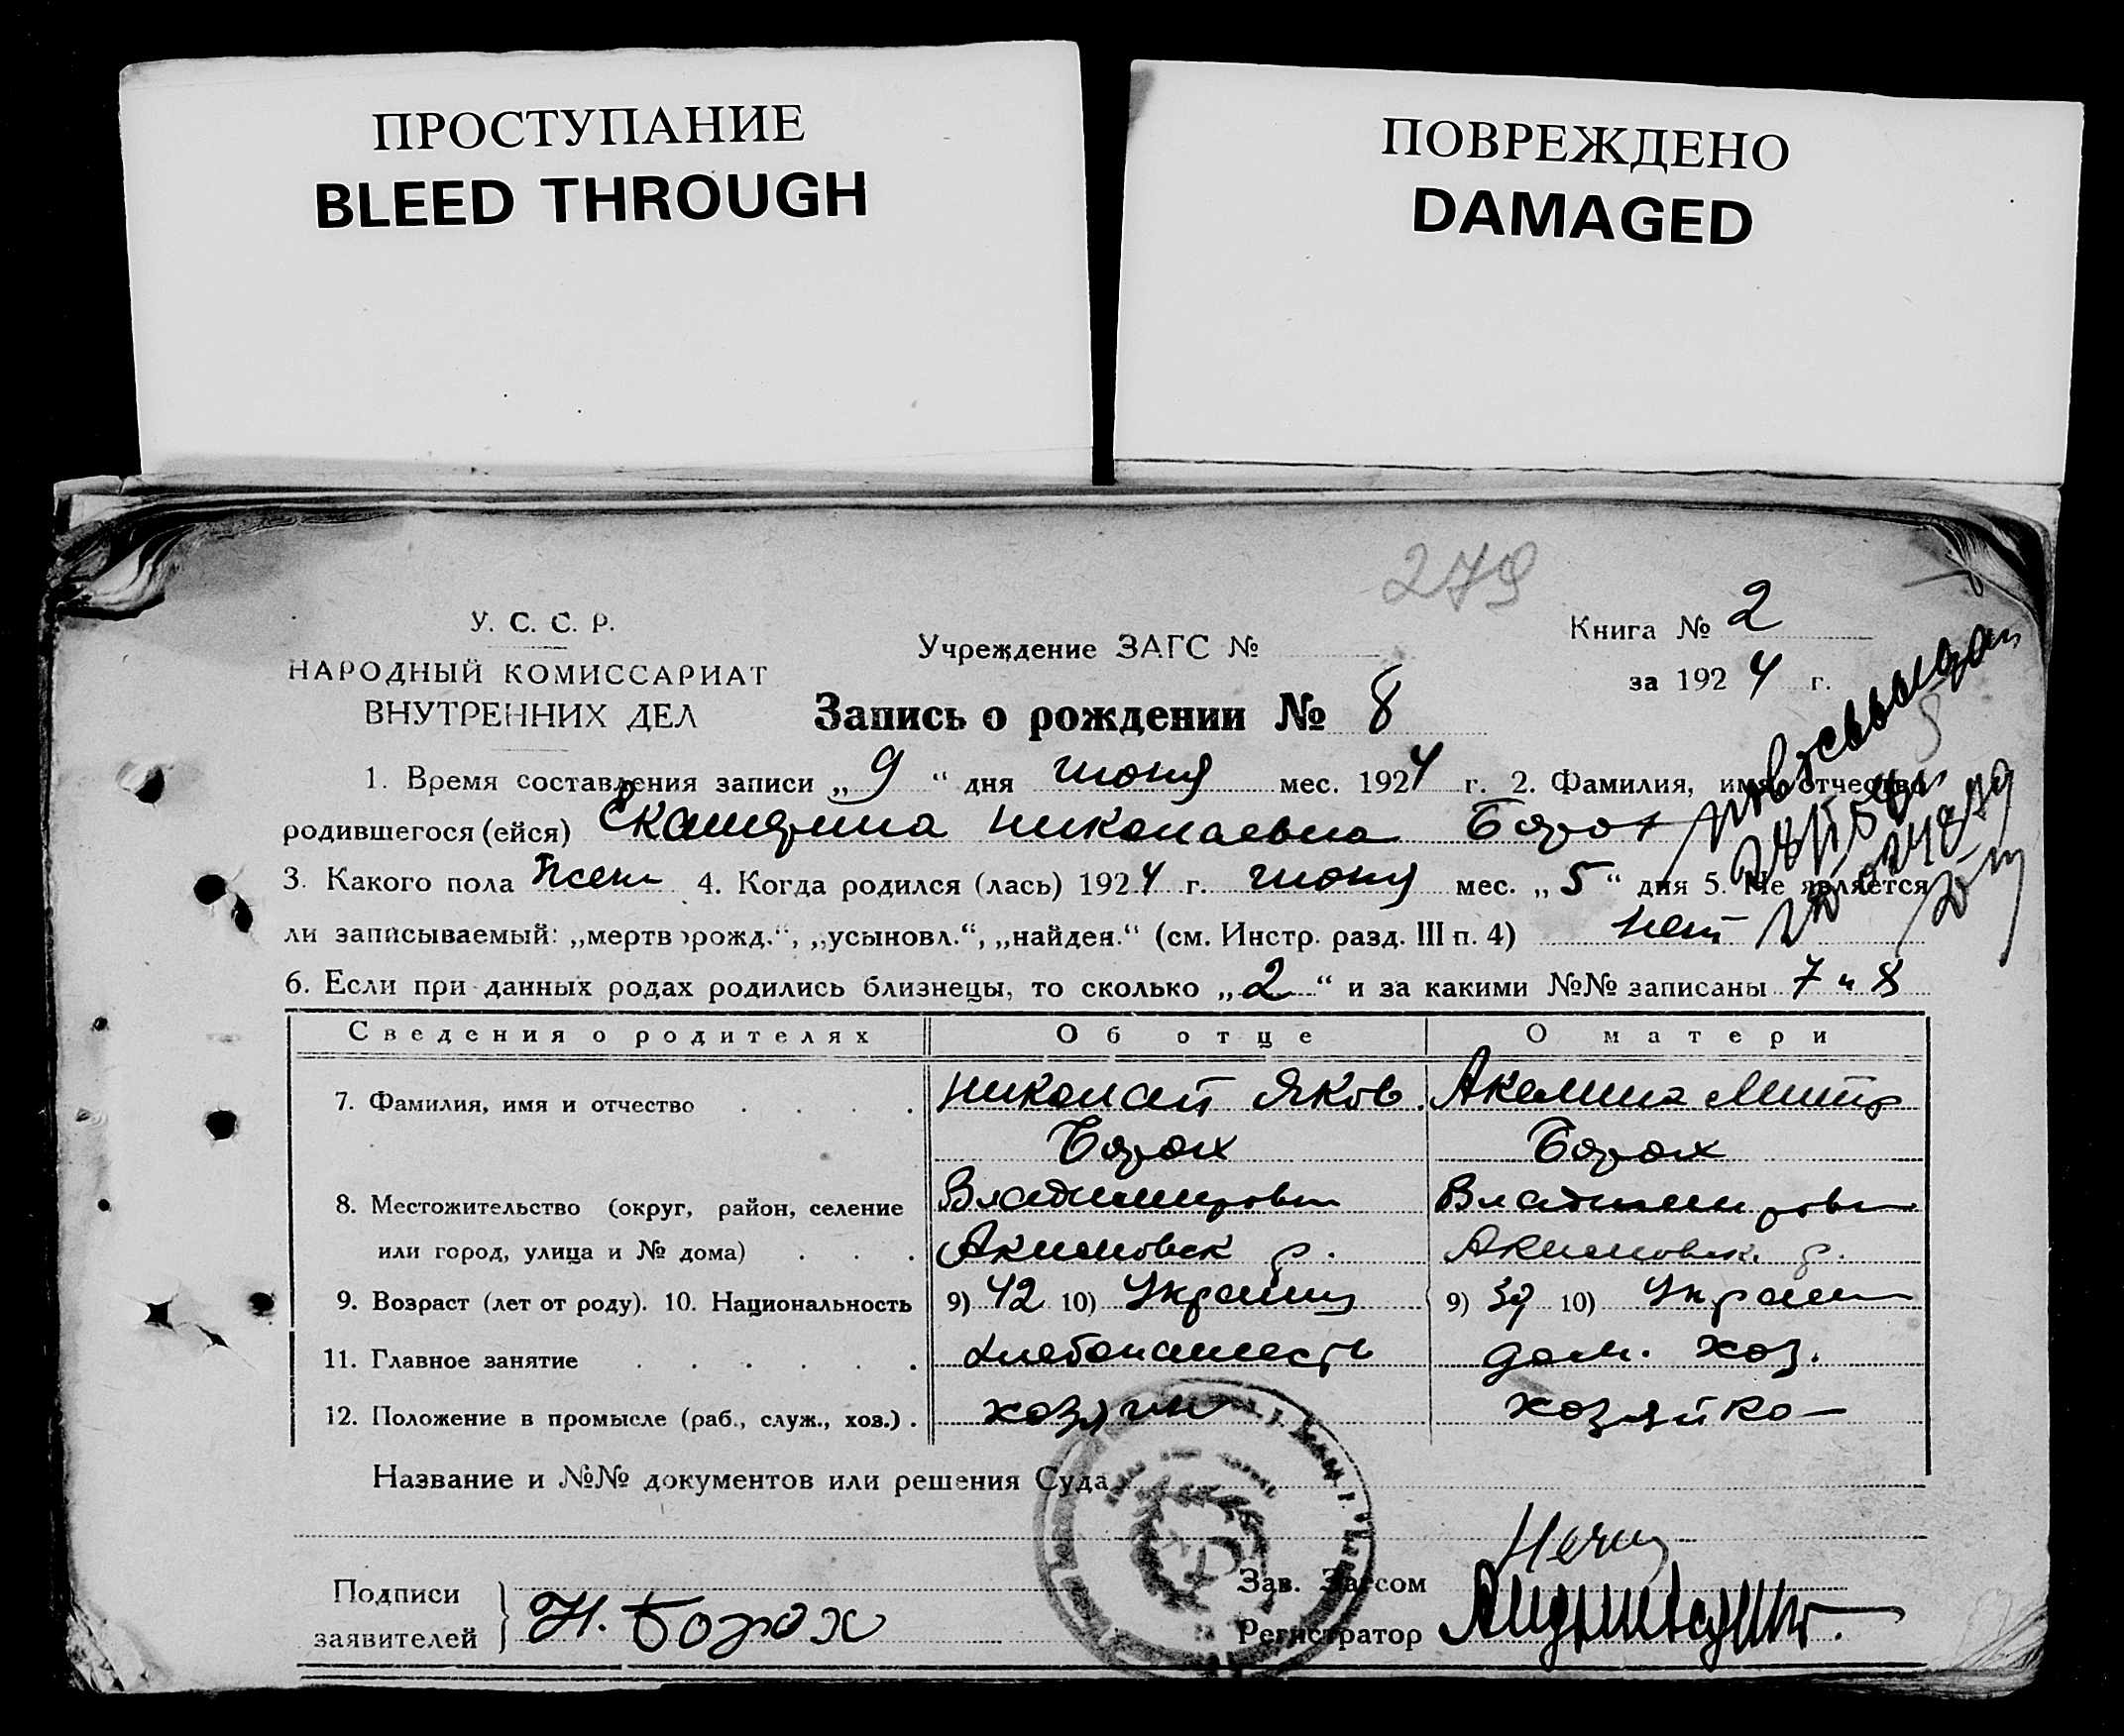 ПРОСТУПАНИЕ
BLEED THROUGH
ПОВРЕЖДЕНО
DAMAGED
279
У. С. С. Р.
НАРОДНЫЙ КОМИССАРИАТ
ВНУТРЕННИХ ДЕЛ
Учреждение ЗАГС №
Книга № 2
за 1924 г.
Запись о рождении № 8
1. Время составления записи „9“ дня июня мес. 1924 г. 2. Фамилия, имя, отчество
родившегося (ейся) Екатерина Николаевна Борох
3. Какого пола жен 4. Когда родился (лась) 1924 г. июня мес. „5“ дня 5. Не является
ли записываемый: „мертворожд.“, „усыновл.“, „найден.“ (см. Инстр. разд. III п. 4) нет
6. Если при данных родах родились близнецы, то сколько „2“ и за какими №№ записаны 7 и 8
Сведения о родителях Об отце О матери
7. Фамилия, имя и отчество Николай Яков. Акелина Митр
Борох Борох
8. Местожительство (округ, район, селение Владимировка Владимировка
или город, улица и № дома) Акимовск р. Акимовск. р.
9. Возраст (лет от роду). 10. Национальность 9) 42 10) Украинц 9) 39 10) Украин
11. Главное занятие Хлебопашесть дом. хоз.
12. Положение в промысле (раб., служ., хоз.) хозяин хозяйка
Название и №№ документов или решения Суда
Подписи
заявителей Н. Борох
Зав. Загсом
Регистратор